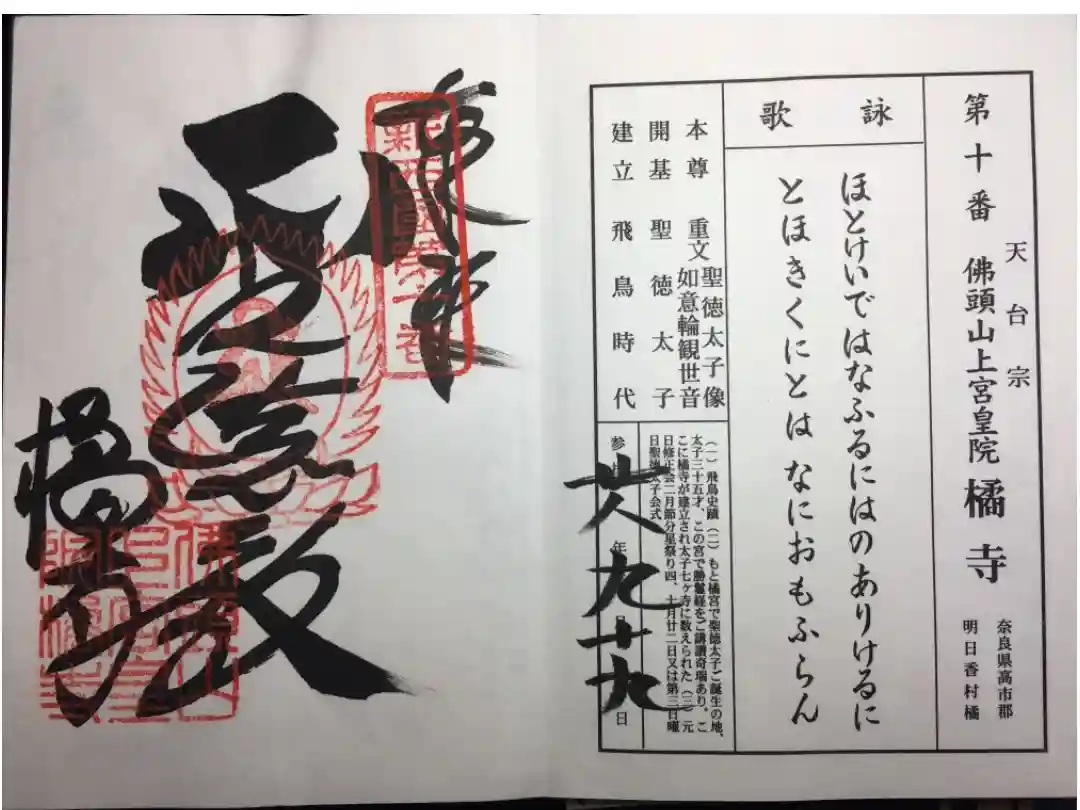 第十番
天台宗
佛頭山上宮皇院 橘寺
奈良県高市郡
明日香村橘
詠歌
ほとけいではなふるにはのありけるに
とほきくにとはなにおもふらん
本尊 重文 聖徳太子像
如意輪観世音
開基 聖徳太子
建立 飛鳥時代
(一)飛鳥史蹟(二)もと橘宮で聖徳太子ご誕生の地、
太子三十五才、この宮で勝鬘経をご講讃奇瑞あり。こ
こに橘寺が建立され太子七ヶ寺に数えられた(三)元
日修正会二月節分星祭り四、十月廿二日又は第三日曜
日聖徳太子会式
参 年 月 日
廿八 九 十九
奉拝
新西國第十番
橘寺